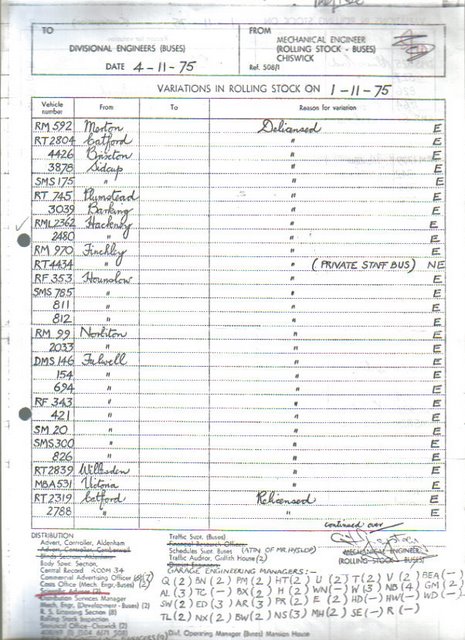 TO
DIVISIONAL ENGINEERS (BUSES)
DATE 4-11-75
FROM
MECHANICAL ENGINEER
(ROLLING STOCK - BUSES)
CHISWICK
Ref. 508/1
VARIATIONS IN ROLLING STOCK ON 1-11-75
Vehicle number From To Reason for variation
RM 592 Merton Delicensed E
RT2804 Catford " E
4426 Brixton " E
3878 Sidcup " E
SMS 175 " " E
RT 745 Plumstead " E
3039 Barking " E
RML2362 Hackney " E
2480 " " E
RM 970 Finchley " E
RT4434 " " (PRIVATE STAFF BUS) NE
RF 353 Hounslow " E
SMS 785 " " E
811 " " E
812 " " E
RM 99 Norbiton " E
2033 " " E
DMS 146 Fulwell " E
154 " " E
694 " " E
RF 343 " " E
421 " " E
SM 20 " " E
SMS 300 " " E
826 " " E
RT2839 Willesden " E
MBA531 Victoria " E
RT2319 Catford Relicensed E
2788 " " E
continued over
MECHANICAL ENGINEER
(ROLLING STOCK - BUSES)
DISTRIBUTION
Advert. Controller, Aldenham
Advert. Controller, Camberwell
Body Spec. Section,
Central Record ROOM 34
Commercial Advertising Officer
Costs Office (Mech. Engr. Buses) (2)
Scientific Adviser (2)
Distribution Services Manager
Mech. Engr. (Development - Buses) (2)
R. S. Engineering Section (8)
Rolling Stock Inspection
Technical Office - Chiswick (2)
Traffic Supt. (Buses)
Schedules Supt. Buses (ATTN OF MR HYSLOP)
Traffic Auditor, Griffith House (2)
GARAGE ENGINEERING MANAGERS:-
Q (2) BN (2) PM (2) HT (2) U (2) T (2) V (2) BEA (-)
AL (3) TC (-) BX (2) H (2) WN (-) W (3) NB (4) GM (2)
SW (2) ED (3) AR (3) PR (2) E (2) HD (-) HW (-) WD (-)
TL (2) NX (2) BW (2) NS (3) MH (2) SE (-) R (-)
Div. Operating Manager (Buses) Mansion House